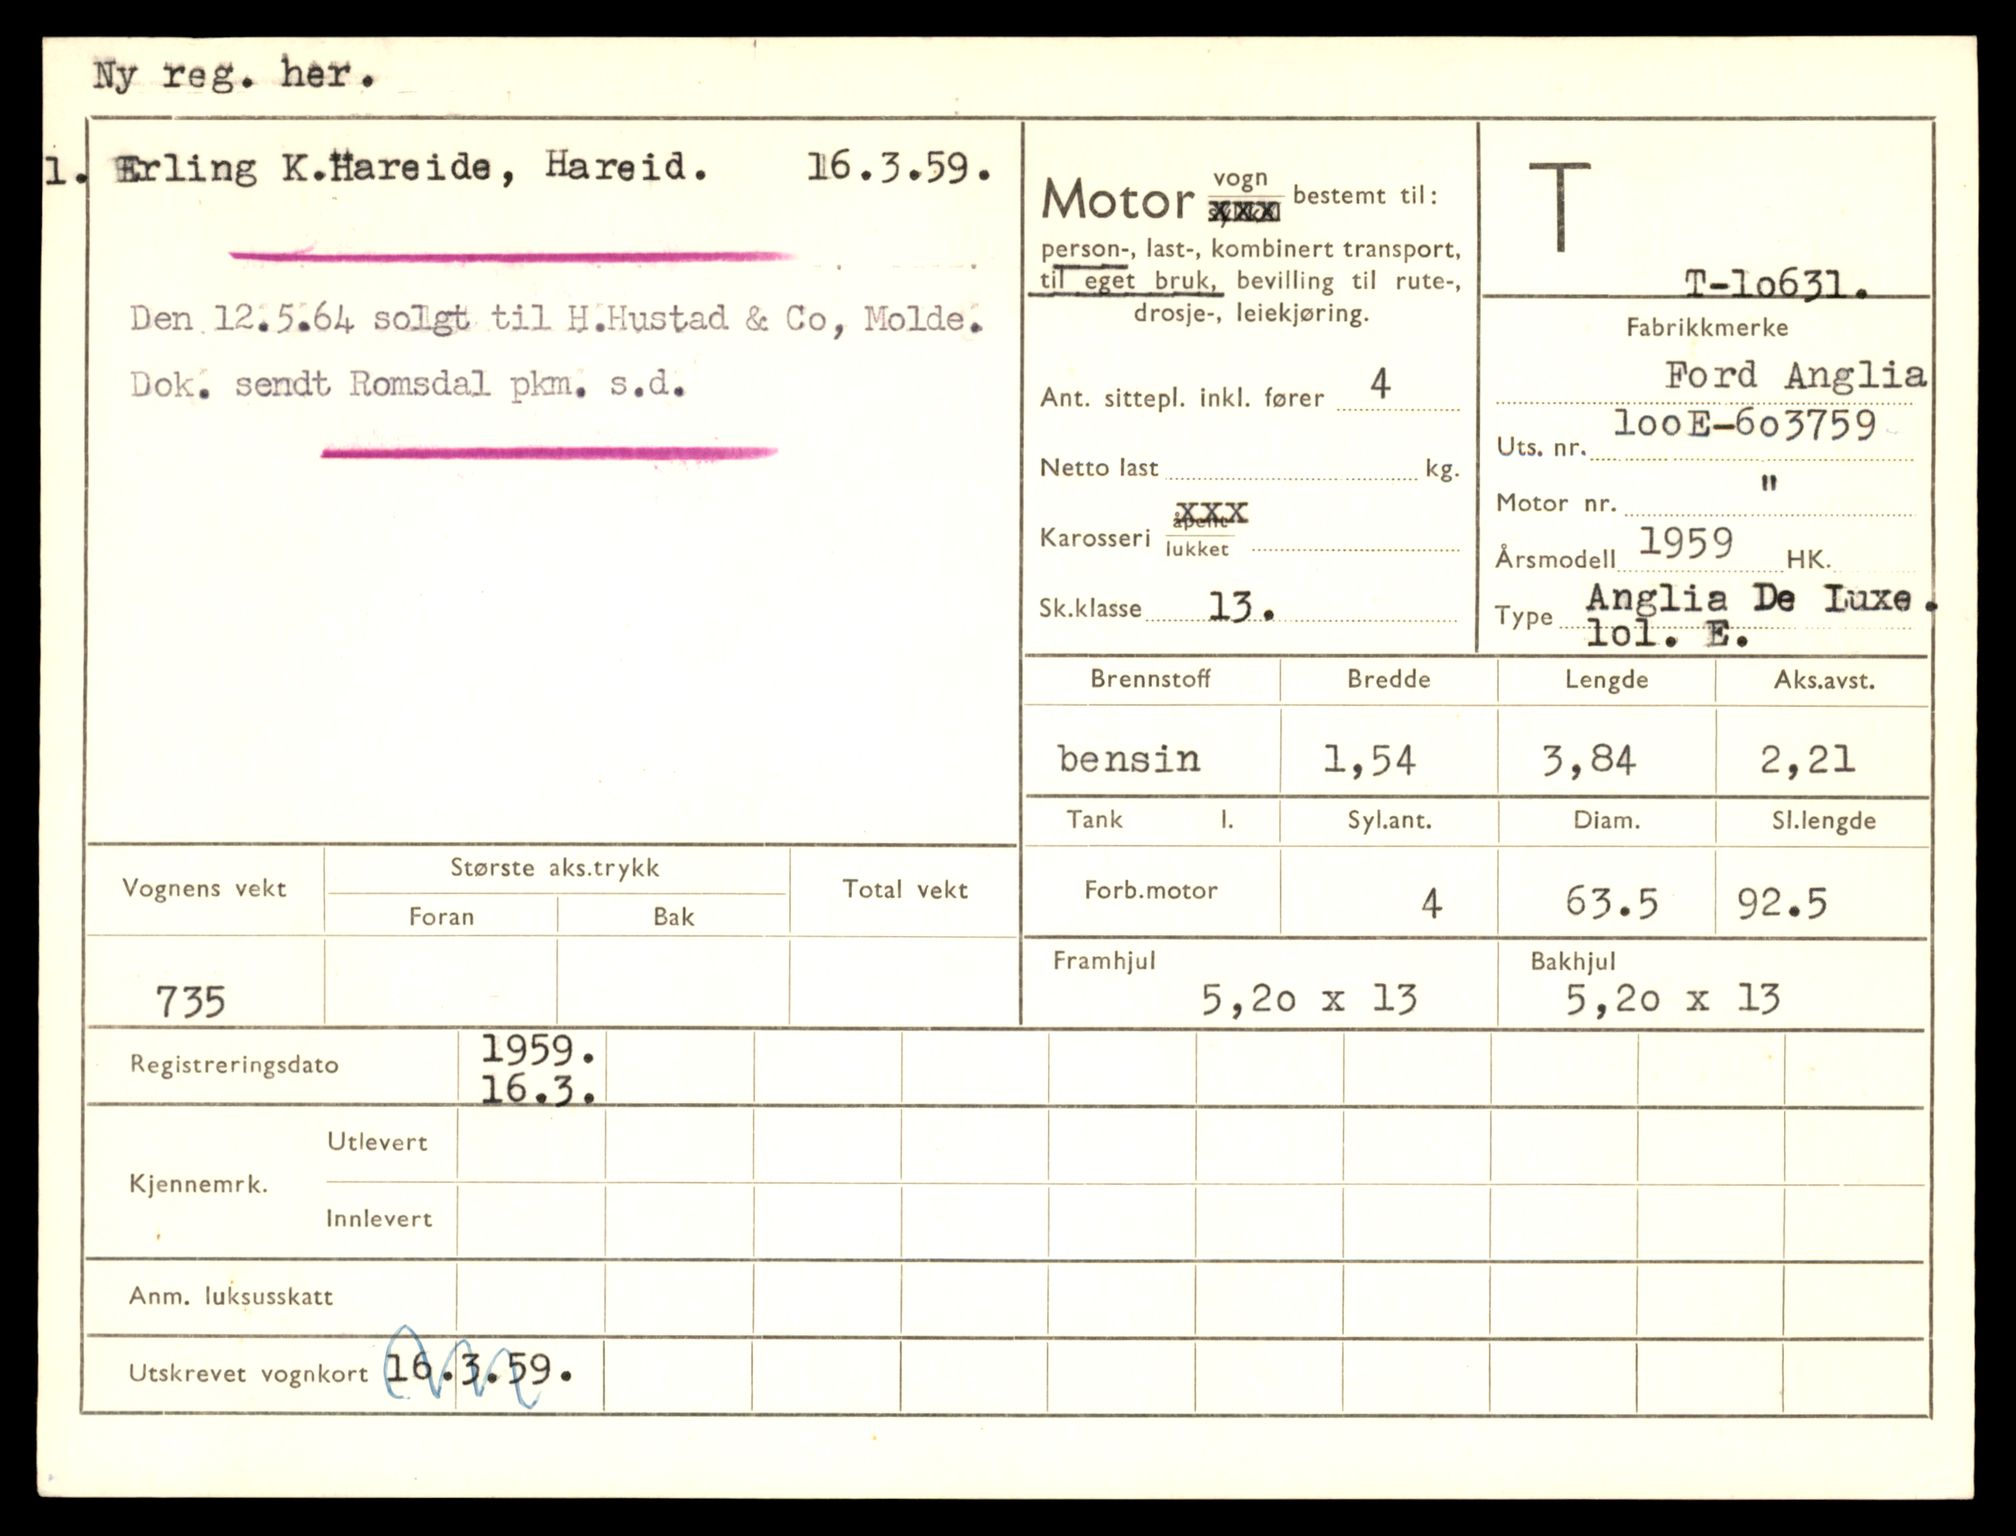 Ny reg. her.
1. Erling K.Hareide, Hareid. 16.3.59.
Den 12.5.64 solgt til H.Hustad & Co, Molde.
Dok. sendt Romsdal pkm. s.d.
Motor vogn xxx bestemt til:
person-, last-, kombinert transport,
til eget bruk, bevilling til rute-,
drosje-, leiekjøring.
Ant. sittepl. inkl. fører 4
Netto last kg.
Karosseri åpent xxx
lukket
Sk.klasse 13.
T
T-10631.
Fabrikkmerke
Ford Anglia
Uts. nr. 100E-603759
Motor nr. "
Årsmodell 1959 HK.
Type Anglia De Luxe.
101. E.
Brennstoff Bredde Lengde Aks.avst.
bensin 1,54 3,84 2,21
Tank l. Syl.ant. Diam. Sl.lengde
Forb.motor 4 63.5 92.5
Framhjul Bakhjul
5,20 x 13 5,20 x 13
Vognens vekt Største aks.trykk Total vekt
Foran Bak
735
Registreringsdato 1959.
16.3.
Kjennemrk. Utlevert
Innlevert
Anm. luksusskatt
Utskrevet vognkort 16.3.59.